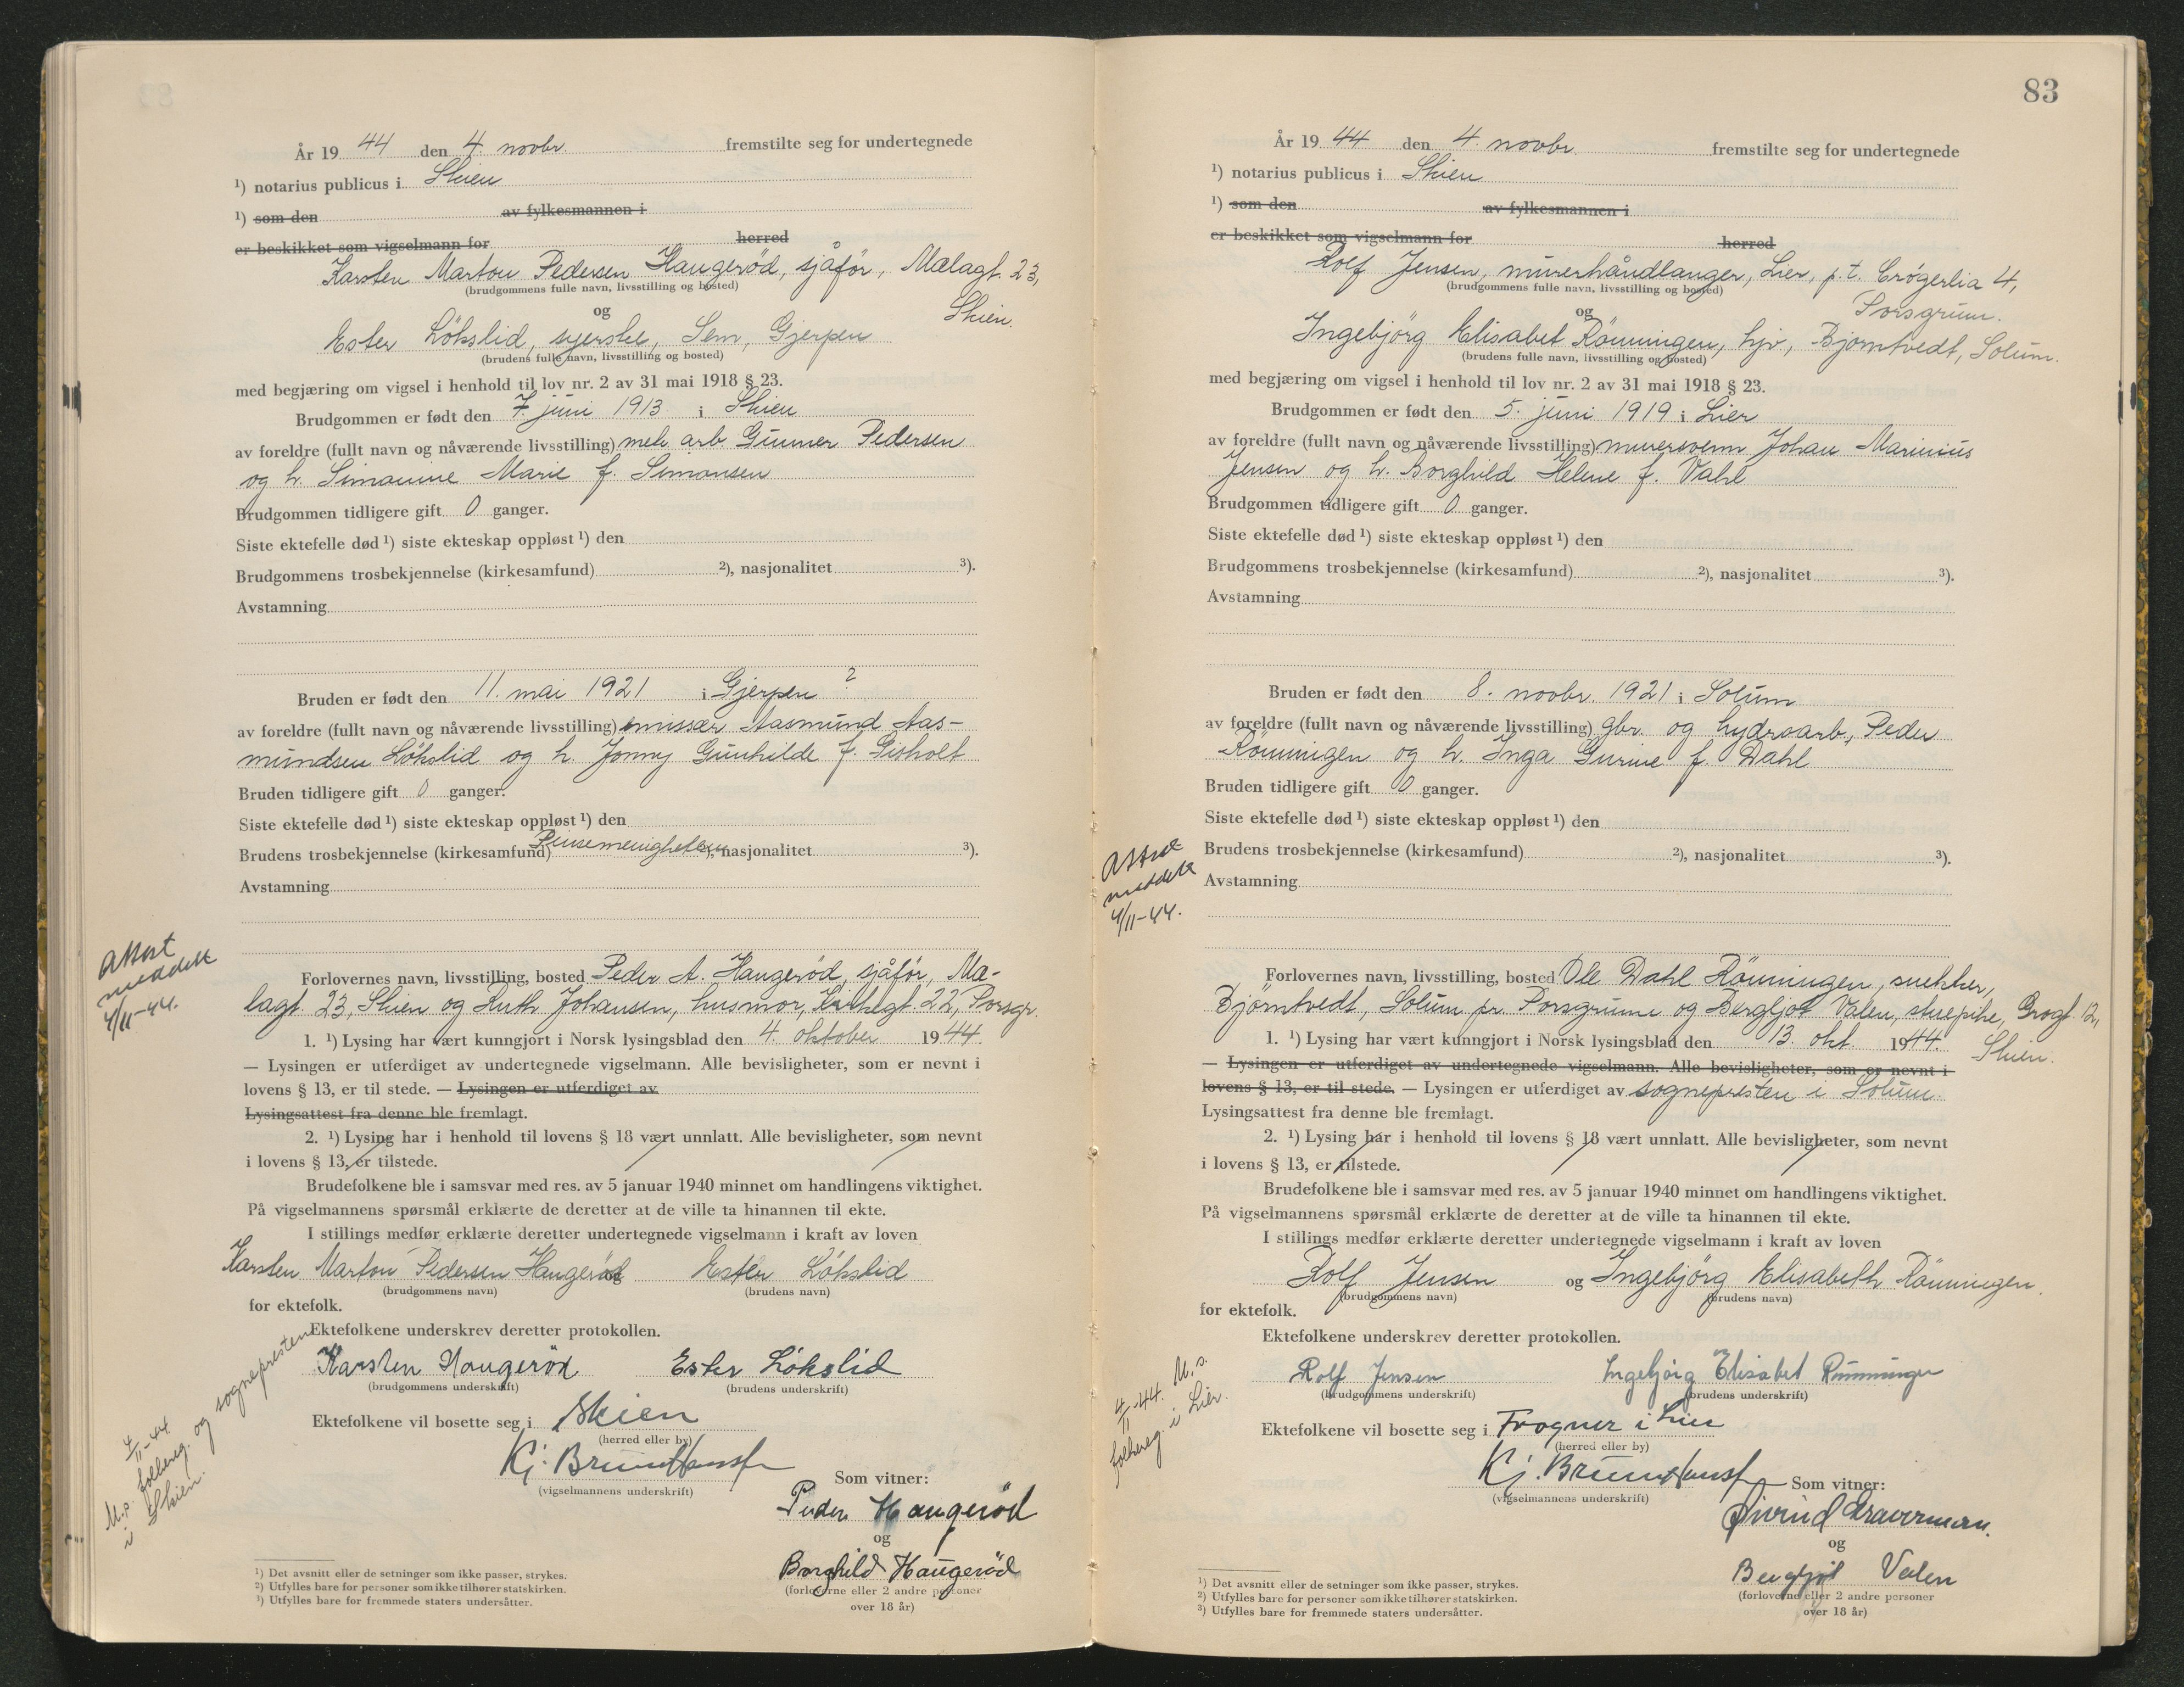 År 19 44 den 4. novbr. fremstilte seg for undertegnede
¹) notarius publicus i Skien
¹) som den av fylkesmannen i
er beskikket som vigselmann for herred
Karsten Marton Pedersen Haugerød, sjåfør, Mælagt. 23,
(brudgommens fulle navn, livsstilling og bosted)
og Skien.
Ester Løkslid, syerske, Sem, Gjerpen
(brudens fulle navn, livsstilling og bosted)
med begjæring om vigsel i henhold til lov nr. 2 av 31 mai 1918 § 23.
Brudgommen er født den 7. juni 1913 i Skien
av foreldre (fullt navn og nåværende livsstilling) mek. arb. Gunner Pedersen
og h. Simonine Marie f. Simonsen
Brudgommen tidligere gift 0 ganger.
Siste ektefelle død ¹) siste ekteskap oppløst ¹) den
Brudgommens trosbekjennelse (kirkesamfund) ²), nasjonalitet ³).
Avstamning
Bruden er født den 11. mai 1921 i Gjerpen ?
av foreldre (fullt navn og nåværende livsstilling) emissær Aasmund Aas-
mundsen Løkslid og h. Jonny Gunhilde f. Gisholt
Bruden tidligere gift 0 ganger.
Siste ektefelle død ¹) siste ekteskap oppløst ¹) den
Brudens trosbekjennelse (kirkesamfund) Pinsemenigheten ²), nasjonalitet ³).
Avstamning
Attest
meddelt
4/11-44.
Forlovernes navn, livsstilling, bosted Peder A. Haugerød, sjåfør, Mæ-
lagt. 23, Skien og Ruth Johansen, husmor, 22, Porsgr.
1. ¹) Lysing har vært kunngjort i Norsk lysingsblad den 4. oktober 1944.
— Lysingen er utferdiget av undertegnede vigselmann. Alle bevisligheter, som er nevnt i
lovens § 13, er til stede. — Lysingen er utferdiget av
Lysingsattest fra denne ble fremlagt.
2. ¹) Lysing har i henhold til lovens § 18 vært unnlatt. Alle bevisligheter, som nevnt
i lovens § 13, er tilstede.
Brudefolkene ble i samsvar med res. av 5 januar 1940 minnet om handlingens viktighet.
På vigselmannens spørsmål erklærte de deretter at de ville ta hinannen til ekte.
I stillings medfør erklærte deretter undertegnede vigselmann i kraft av loven
Karsten Marton Pedersen Haugerød og Ester Løkslid
(brudgommens navn) (brudens navn)
for ektefolk.
Ektefolkene underskrev deretter protokollen.
Karsten Haugerød Ester Løkslid
(brudgommens underskrift) (brudens underskrift)
Ektefolkene vil bosette seg i Skien
(herred eller by)
Kj. Bruun Hansen
(vigselmannens underskrift)
4/11-44
M.s. folkereg. og sognepresten
i Skien.
Som vitner:
Peder Haugerød
og
Borghild Haugerød
(forloverne eller 2 andre personer
over 18 år)
¹) Det avsnitt eller de setninger som ikke passer, strykes.
²) Utfylles bare for personer som ikke tilhører statskirken.
³) Utfylles bare for fremmede staters undersåtter.
83
År 19 44 den 4. novbr. fremstilte seg for undertegnede
¹) notarius publicus i Skien
¹) som den av fylkesmannen i
er beskikket som vigselmann for herred
Rolf Jensen, murerhåndlanger, Lier, p.t. Crøgerlia 4,
(brudgommens fulle navn, livsstilling og bosted)
og Porsgrunn.
Ingebjørg Elisabet Rønningen, hjv, Bjørntvedt, Solum.
(brudens fulle navn, livsstilling og bosted)
med begjæring om vigsel i henhold til lov nr. 2 av 31 mai 1918 § 23.
Brudgommen er født den 5. juni 1919 i Lier
av foreldre (fullt navn og nåværende livsstilling) murersvenn Johan Marinius
Jensen og h. Borghild Helene f. Vahl
Brudgommen tidligere gift 0 ganger.
Siste ektefelle død ¹) siste ekteskap oppløst ¹) den
Brudgommens trosbekjennelse (kirkesamfund) ²), nasjonalitet ³).
Avstamning
Bruden er født den 8. novbr. 1921 i Solum
av foreldre (fullt navn og nåværende livsstilling) gbr. og hydroarb. Peder
Rønningen og h. Inga Gurine f. Dahl
Bruden tidligere gift 0 ganger.
Siste ektefelle død ¹) siste ekteskap oppløst ¹) den
Brudens trosbekjennelse (kirkesamfund) ²), nasjonalitet ³).
Avstamning
Attest
meddelt
4/11-44.
Forlovernes navn, livsstilling, bosted Ole Dahl Rønningen, snekker,
Bjørntvedt, Solum pr. Porsgrunn og Bergljot Valen, stuepike, Grogt. 12,
1. ¹) Lysing har vært kunngjort i Norsk lysingsblad den 13. okt. 1944. Skien.
— Lysingen er utferdiget av undertegnede vigselmann. Alle bevisligheter, som er nevnt i
lovens § 13, er til stede. — Lysingen er utferdiget av sognepresten i Solum.
Lysingsattest fra denne ble fremlagt.
2. ¹) Lysing har i henhold til lovens § 18 vært unnlatt. Alle bevisligheter, som nevnt
i lovens § 13, er tilstede.
Brudefolkene ble i samsvar med res. av 5 januar 1940 minnet om handlingens viktighet.
På vigselmannens spørsmål erklærte de deretter at de ville ta hinannen til ekte.
I stillings medfør erklærte deretter undertegnede vigselmann i kraft av loven
Rolf Jensen og Ingebjørg Elisabeth Rønningen.
(brudgommens navn) (brudens navn)
for ektefolk.
Ektefolkene underskrev deretter protokollen.
Rolf Jensen Ingebjørg Elisabet Rønningen
(brudgommens underskrift) (brudens underskrift)
Ektefolkene vil bosette seg i Frogner i Lier
(herred eller by)
Kj. Bruun Hansen
(vigselmannens underskrift)
4/11-44. M.s.
folkereg. i Lier.
Som vitner:
Øivind
og
Bergljot Valen
(forloverne eller 2 andre personer
over 18 år)
¹) Det avsnitt eller de setninger som ikke passer, strykes.
²) Utfylles bare for personer som ikke tilhører statskirken.
³) Utfylles bare for fremmede staters undersåtter.